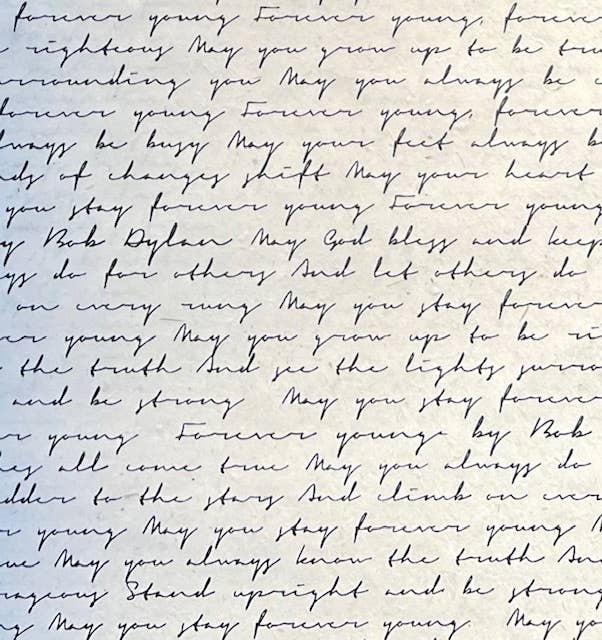 forever young Forever young, forever
righteous May you grow up to be true
surrounding you May you always be
forever young Forever young, forever
always be busy May your feet always b
nds of changes shift May your heart
you stay forever young Forever young
y Bob Dylan May God bless and keep
ys do for others And let others do
on every rung May you stay forever
er young May you grow up to be ri
the truth And see the lights surro
and be strong May you stay forever
r young Forever young by Bob
hes all come true May you always do
dder to the stars And climb on ever
r young May you stay forever young
ue May you always know the truth And
rageous Stand upright and be strong
ng May you stay forever young May yo